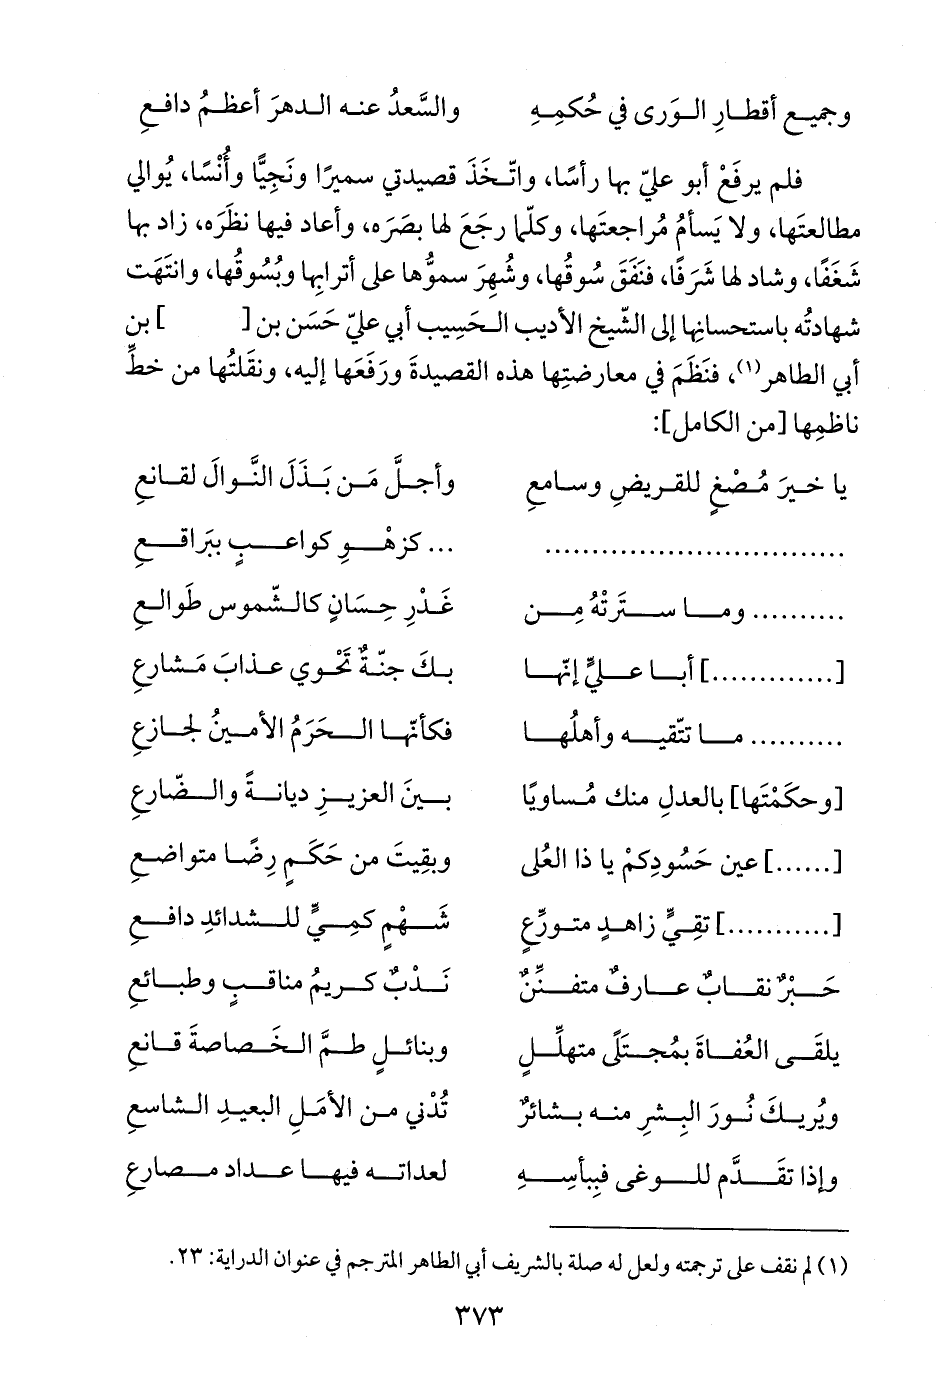 وجميع أقطارِ الوَرى في حُكمِهِ والسَّعدُ عنه الدهرَ أعظمُ دافعِ
فلم يرفَعْ أبو عليّ بها رأسًا، واتّخَذَ قصيدتي سميرًا ونَجِيًّا وأُنْسًا، يُوالي
مطالعتَها، ولا يَسأمُ مُراجعتَها، وكلّما رجَعَ لها بصَرَه، وأعاد فيها نظَرَه، زاد بها
شَغَفًا، وشاد لها شَرَفًا، فنَفَقَ سُوقُها، وشُهِرَ سموُّها على أترابِها وبُسُوقُها، وانتَهَت
شهادتُه باستحسانِها إلى الشّيخ الأديب الحَسِيب أبي عليّ حَسَن بن [ ] بن
أبي الطاهر(١)، فنَظَمَ في معارضتِها هذه القصيدةَ ورَفَعَها إليه، ونقَلتُها من خطِّ
ناظمِها [من الكامل]:
يا خيرَ مُصْغٍ للقريضِ وسامعِ وأجلَّ مَن بَذَلَ النَّوالَ لقانعِ
............................... ... كزهْوِ كواعبٍ ببَراقعِ
.......... وما سترَتْهُ مِن غَدْرِ حِسَانٍ كالشّموس طَوالعِ
[.............] أبا عليٍّ إنّها بكَ جنّةٌ تَحْوي عذابَ مَشارعِ
.......... ما تتّقيه وأهلُها فكأنّها الحَرَمُ الأمينُ لجازعِ
[وحكَمْتَها] بالعدلِ منك مُساويًا بينَ العزيزِ ديانةً والضّارعِ
[......] عين حَسُودِكمْ يا ذا العُلى وبقِيتَ من حَكَمٍ رِضًا متواضعِ
[...........] تقِيٍّ زاهدٍ متورِّعٍ شَهْمٍ كمِيٍّ للشدائدِ دافعِ
حَبْرٌ نقابٌ عارفٌ متفنِّنٌ نَدْبٌ كريمُ مناقبٍ وطبائعِ
يلقَى العُفاةَ بمُجتَلًى متهلِّلٍ وبنائلٍ طمَّ الخَصاصةَ قانعِ
ويُريكَ نُورَ البِشرِ منه بشائرٌ تُدْني من الأمَلِ البعيدِ الشاسعِ
وإذا تقَدَّم للوغى فبِبأسِهِ لعداته فيها عداد مصارعِ
(١) لم نقف على ترجمته ولعل له صلة بالشريف أبي الطاهر المترجم في عنوان الدراية: ٢٣.
٣٧٣